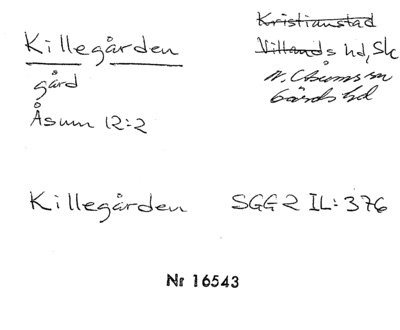 Killegården
Kristianstad
Villands hd, Sk
gård
N. Åsum sn
Gärds hd
Åsum 12:2
Killegården SGG 2 IL: 376
Nr 16543